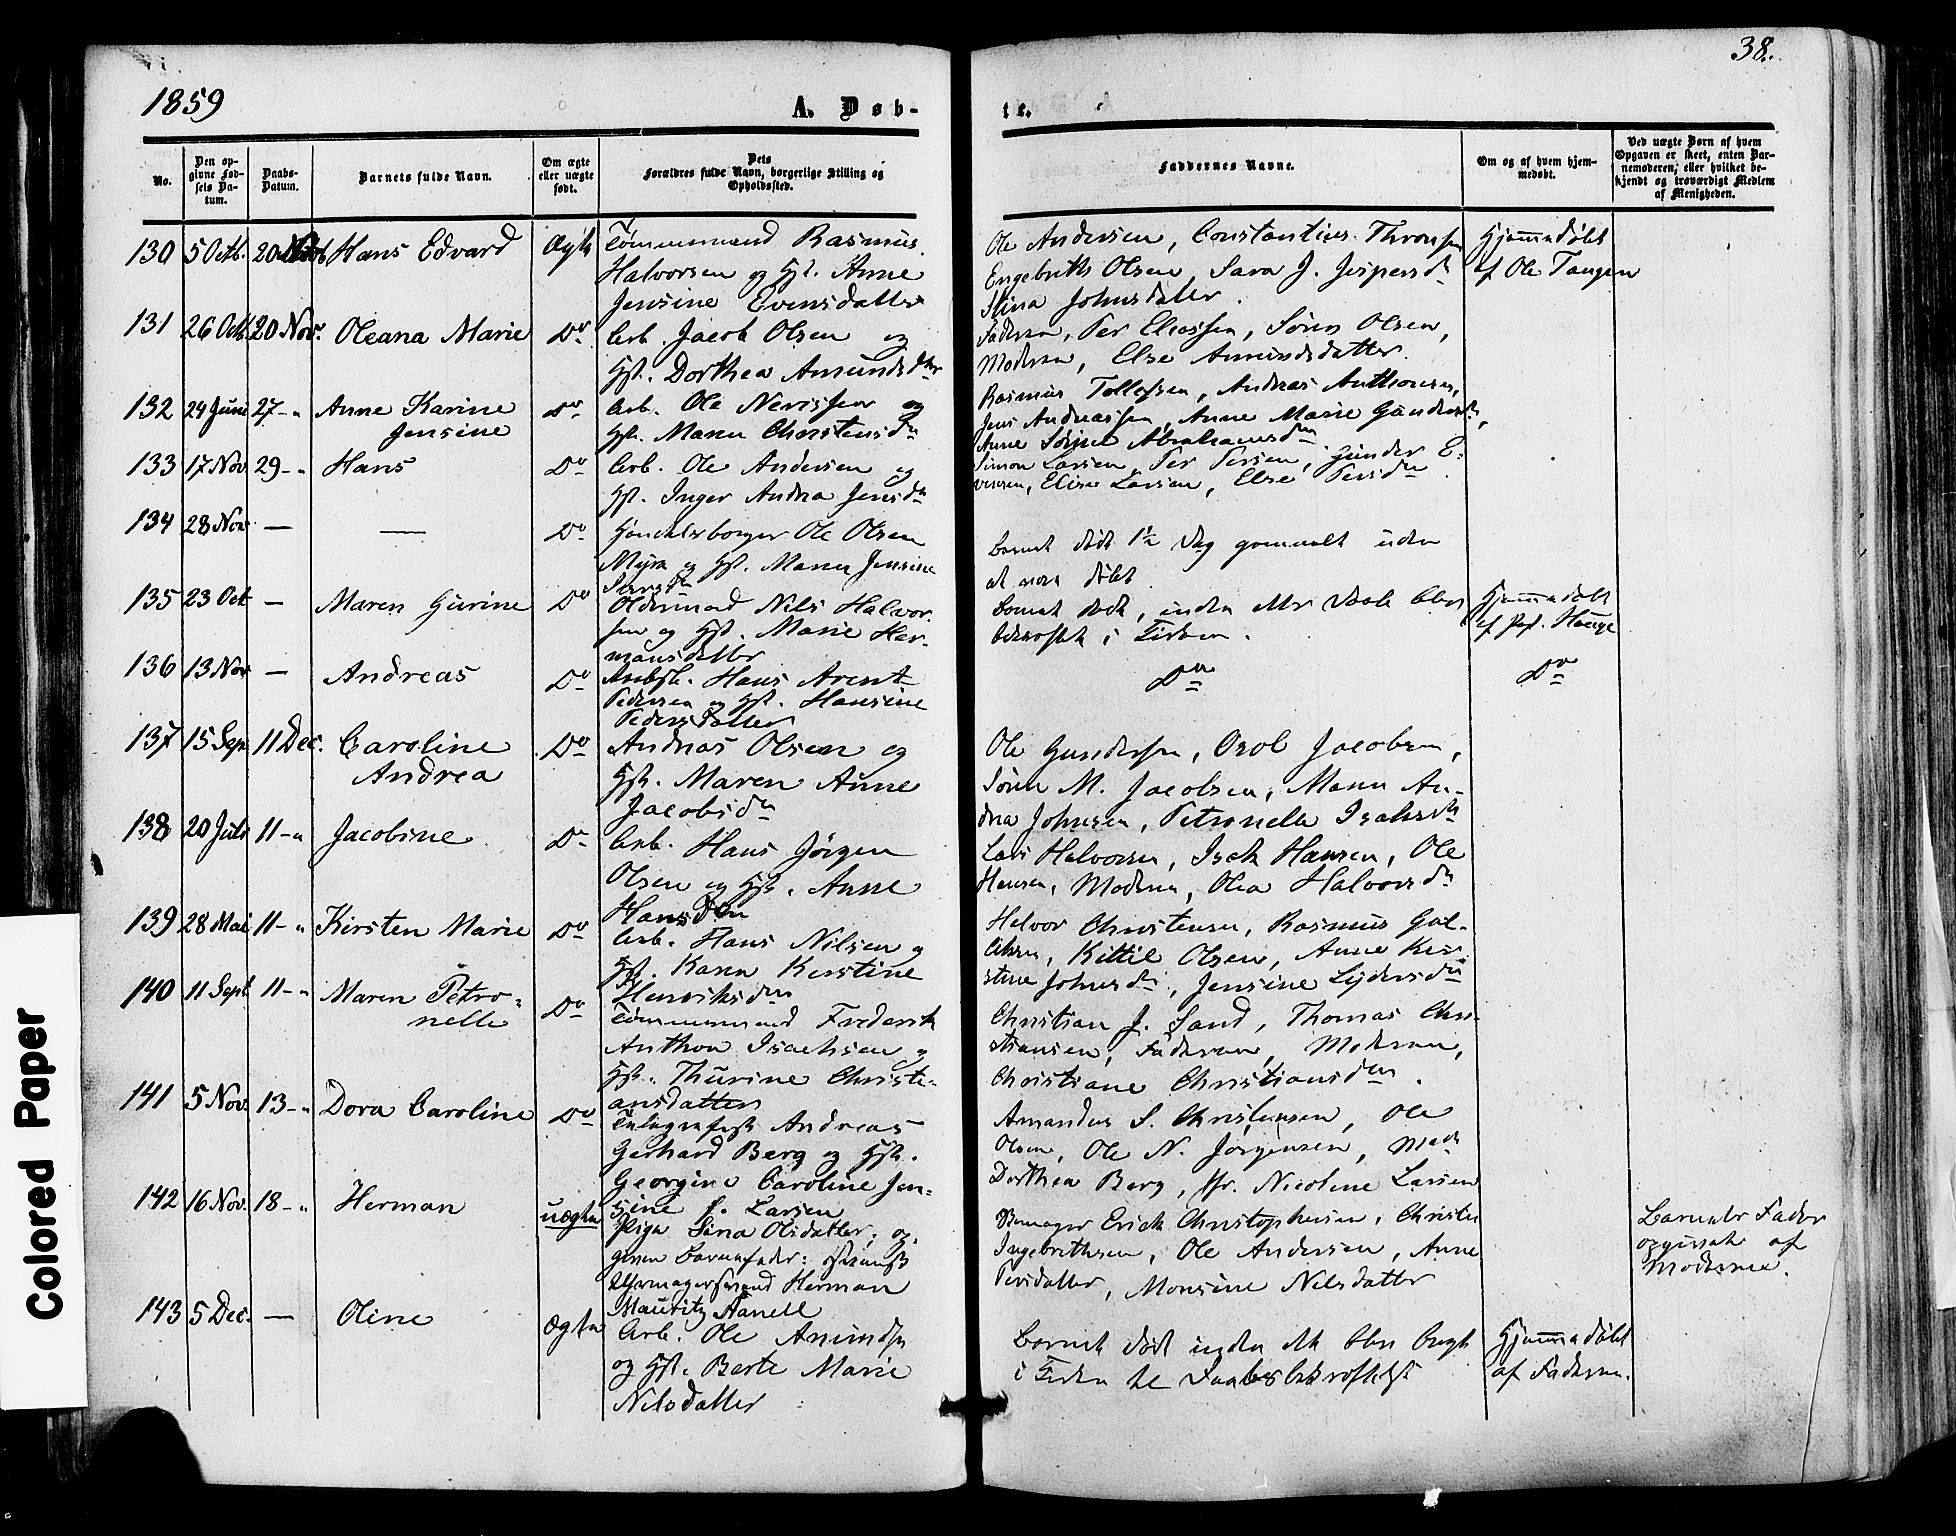 38.
1859
A. Døb-
te.
No.
Den op-
givne Fød-
sels Da-
tum.
Daabs-
Datum.
Barnets fulde Navn.
Om ægte
eller uægte
født.
Dets
Forældres fulde Navn, borgerlige Stilling og
Opholdssted.
Faddernes Navne.
Om og af hvem hjem-
medøbt.
Ved uægte Børn af hvem
Opgaven er skeet, enten Bar-
nemoderen, eller hvilket be-
kjendt og troværdigt Medlem
af Menigheden.
130 5 Octb. 20 Hans Edvard Ægte Tømmermand Rasmus
Halvorsen og Hst. Anne
Jensine Evensdatter
Ole Andersen, Constantius Thronsen
Engebreth Olsen, Sara J. Jespersdr
Stina Johnsdatter.
Hjemmedøbt
af Ole Tangen
131 26 Octb. 20 Nov. Oleana Marie Do Arb. Jacob Olsen og
Hst. Dorthea Amundsdtter
Faderen, Per Eliassen, Søren Olsen,
Moderen, Else Amundsdatter.
132 24 Juni 27 - " Anne Karine
Jensine
Do Arb. Ole Nerissen og
Hst. Maren Christensdr
Rasmus Tollefsen, Andreas Anthonsen,
Jens Andreassen, Anne Marie Gundersdr,
Anne Abrahamsdr
133 17 Nov 29 - " Hans Do Arb. Ole Andersen og
Hst. Inger Andrea Jensdr
Simon Larsen, Per Persen, Gunder E-
vensen, Elise Larsen, Else Persdr.
134 28 Nov — — Do Handelsborger Ole Olsen
Myra og Hst. Maren Jensine
Barnet døde 1½ Dag gammelt uden
at være døbt
135 23 Oct — Maren Gurine Do Oldermand Nils Halvor-
sen og Hst. Marie Her-
mansdatter
Barnet døde, inden dets Daab blev
bekræftet i Kirken.
Hjemmedøbt
af Hauge
136 13 Nov — Andreas Do Hans Arent
Pedersen og Hst. Hansine
Pedersdatter
Do
Do
137 15 Sep. 11 Dec. Caroline
Andrea
Do Andreas Olsen og
Hst. Maren Anne
Jacobsdr
Ole Gundersen, Jacobsen,
Søren M. Jacobsen, Maren An-
drea Johnsen, Petronelle Isaksdr
138 20 Juli 11 - " Jacobine Do Arb. Hans Jörgen
Olsen og Hst. Anne
Hansdtr
Lars Halvorsen, Isak Hansen, Ole
Hansen, Moderen, Olea Halvorsdr
139 28 Mai 11 - " Kirsten Marie Do Arb. Hans Nilsen og
Hst. Karen Kerstine
Henriksdr
Halvor Christensen, Rasmus Gul-
liksen, Kittil Olsen, Anne Ker-
stine Johnsdr, Jensine Lydersdr
140 11 Sept 11 - " Maren Petro-
nelle
Do Tømmermand Frederik
Anthon Isachsen og
Hst. Thurine Christi-
ansdatter
Christian J. Sand, Thomas Chri-
stiansen, Faderen, Moderen,
Christiane Christiansdr.
141 5 Nov. 13 - " Dora Caroline Do Telegrafist Andreas
Gerhard Berg og Hst.
Georgine Caroline Jen-
sine f. Larsen
Amandus S. Christensen, Ole
Olsen, Ole N. Jørgensen, Mad.
Dorthea Berg, Jfr. Nicoline Larsen
142 16 Nov. 18 - " Herman uægte Pige Lina Olsdatter; op-
given Barnefader:
Uhrmagersvend Herman
Mauritz Aanell
Erick Christophersen, Christen
Ingebrethsen, Ole Andersen, Anne
Persdatter, Monsine Nilsdatter
Barnets Fader
opgivet af
Moderen.
143 5 Dec. — Oline Ægte Arb. Ole Amundsen
og Hst. Berte Marie
Nilsdatter
Barnet død inden det blev bragt
i Kirken til Daabsbekræftelse
Hjemmedøbt
af Faderen.
Colored Paper